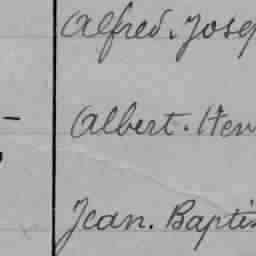 Alfred. Josep
Albert. Hen
Jean. Baptis